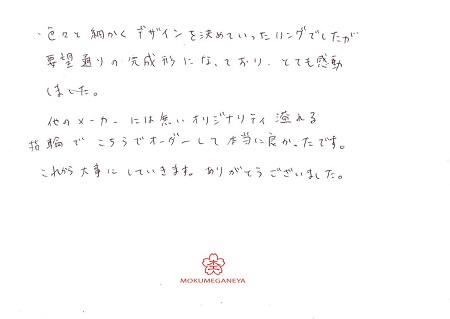 ・色々と細かくデザインを決めていったリングでしたが
要望通りの完成形になっており、とても感動
しました。
他のメーカーには無いオリジナリティ溢れる
指輪でこちらでオーダーして本当に良かったです。
これから大事にしていきます。ありがとうございました。
MOKUMEGANEYA